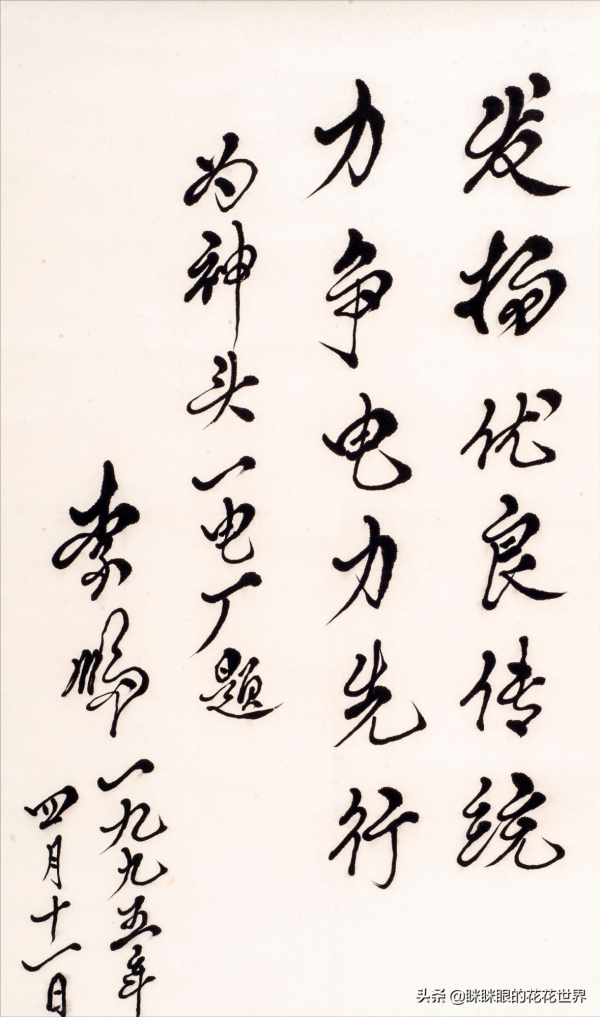 发扬优良传统
力争电力先行
为神头一电厂题
李鹏
一九九五年
四月十一日
头条 @眯眯眼的花花世界